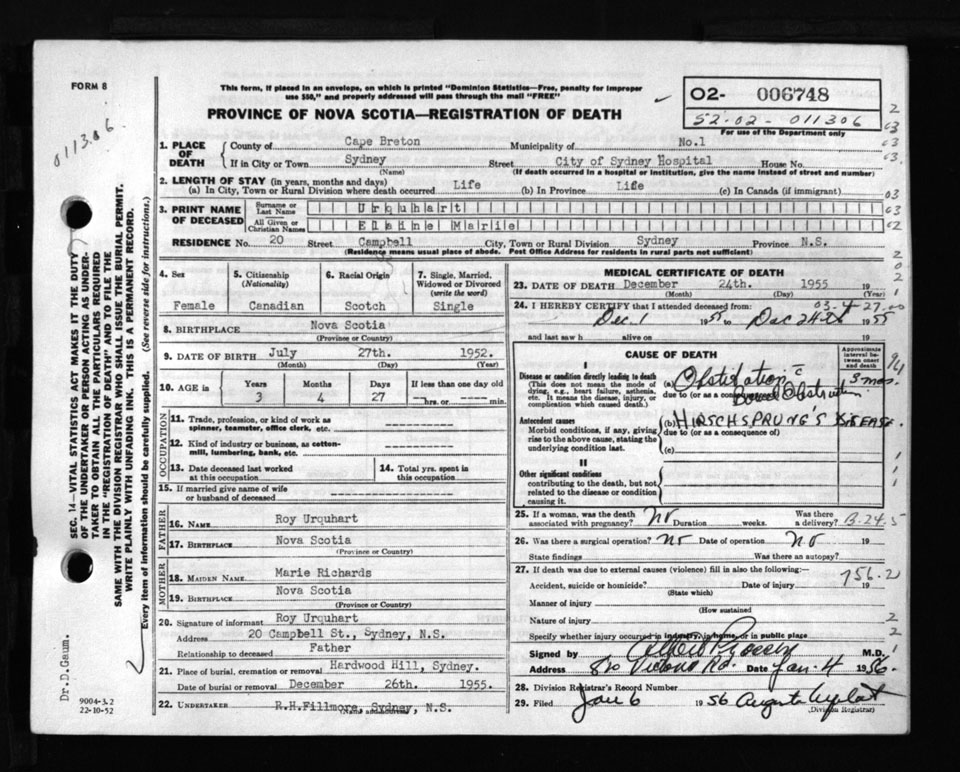 FORM 8
This form, if placed in an envelope, on which is printed "Dominion Statistics—Free, penalty for improper
use $50," and properly addressed will pass through the mail "FREE"
PROVINCE OF NOVA SCOTIA—REGISTRATION OF DEATH
02- 006748
52-02-011306
For use of the Department only
011306
SEC. 14—VITAL STATISTICS ACT MAKES IT THE DUTY
OF THE UNDERTAKER OR PERSON ACTING AS UNDER-
TAKER TO OBTAIN ALL THE PARTICULARS REQUIRED
IN THE "REGISTRATION OF DEATH" AND TO FILE THE
SAME WITH THE DIVISION REGISTRAR WHO SHALL ISSUE THE BURIAL PERMIT.
WRITE PLAINLY WITH UNFADING INK. THIS IS A PERMANENT RECORD.
Every item of information should be carefully supplied. (See reverse side for instructions.)
Dr.D.Gaum.
9004-3.2
22-10-52
1. PLACE OF DEATH
County of Cape Breton Municipality of No.1
If in City or Town Sydney Street City of Sydney Hospital House No.
(Name) (If death occurred in a hospital or institution, give the name instead of street and number)
2. LENGTH OF STAY (in years, months and days)
(a) In City, Town or Rural Division where death occurred Life (b) In Province Life (c) In Canada (if immigrant)
3. PRINT NAME OF DECEASED
Surname or Last Name Urquhart
All Given or Christian Names Elaine Marie
RESIDENCE No. 20 Street Campbell City, Town or Rural Division Sydney Province N.S.
(Residence means usual place of abode. Post Office Address for residents in rural parts not sufficient)
4. Sex Female
5. Citizenship (Nationality) Canadian
6. Racial Origin Scotch
7. Single, Married, Widowed or Divorced (write the word) Single
8. BIRTHPLACE Nova Scotia
(Province or Country)
9. DATE OF BIRTH July 27th. 1952.
(Month) (Day) (Year)
10. AGE is Years 3 Months 4 Days 27 If less than one day old hrs. or min.
OCCUPATION
11. Trade, profession, or kind of work as
spinner, teamster, office clerk, etc.
12. Kind of industry or business, as cotton-
mill, lumbering, bank, etc.
13. Date deceased last worked
at this occupation
14. Total yrs. spent in
this occupation
15. If married give name of wife
or husband of deceased
FATHER
16. NAME Roy Urquhart
17. BIRTHPLACE Nova Scotia
(Province or Country)
MOTHER
18. MAIDEN NAME Marie Richards
19. BIRTHPLACE Nova Scotia
(Province or Country)
20. Signature of informant Roy Urquhart
Address 20 Campbell St., Sydney, N.S.
Relationship to deceased Father
21. Place of burial, cremation or removal Hardwood Hill, Sydney.
Date of burial or removal December 26th. 1955.
22. UNDERTAKER R.H.Fillmore, Sydney, N.S.
(Name and address)
MEDICAL CERTIFICATE OF DEATH
23. DATE OF DEATH December 24th. 1955
(Month) (Day) (Year)
24. I HEREBY CERTIFY that I attended deceased from:
03-4 27-00
Dec. 1 1955 to Dec 24th 1955
and last saw h alive on 19
CAUSE OF DEATH
Approximate interval between onset and death
I
Disease or condition directly leading to death
(This does not mean the mode of
dying, e.g., heart failure, asthenia,
etc. It means the disease, injury, or
complication which caused death.)
(a) Obstipation c̄ 3 mos.
due to (or as a consequence of) Bowel Obstruction
Antecedent causes
Morbid conditions, if any, giving
rise to the above cause, stating the
underlying condition last.
(b) HIRSCHSPRUNG'S DISEASE.
due to (or as a consequence of)
(c)
II
Other significant conditions
contributing to the death, but not
related to the disease or condition
causing it.
25. If a woman, was the death
associated with pregnancy? No Duration weeks. Was there a delivery? B-24-5
26. Was there a surgical operation? No Date of operation No 19
State findings Was there an autopsy?
27. If death was due to external causes (violence) fill in also the following:—
756.2
Accident, suicide or homicide? Date of injury 19
(State which)
Manner of injury
(How sustained
Nature of injury
Specify whether injury occurred in industry, in home, or in public place
Signed by M.D.
Address 820 Victoria Rd. Date Jan. 4 1956
28. Division Registrar's Record Number
29. Filed Jan 6 1956
(Division Registrar)